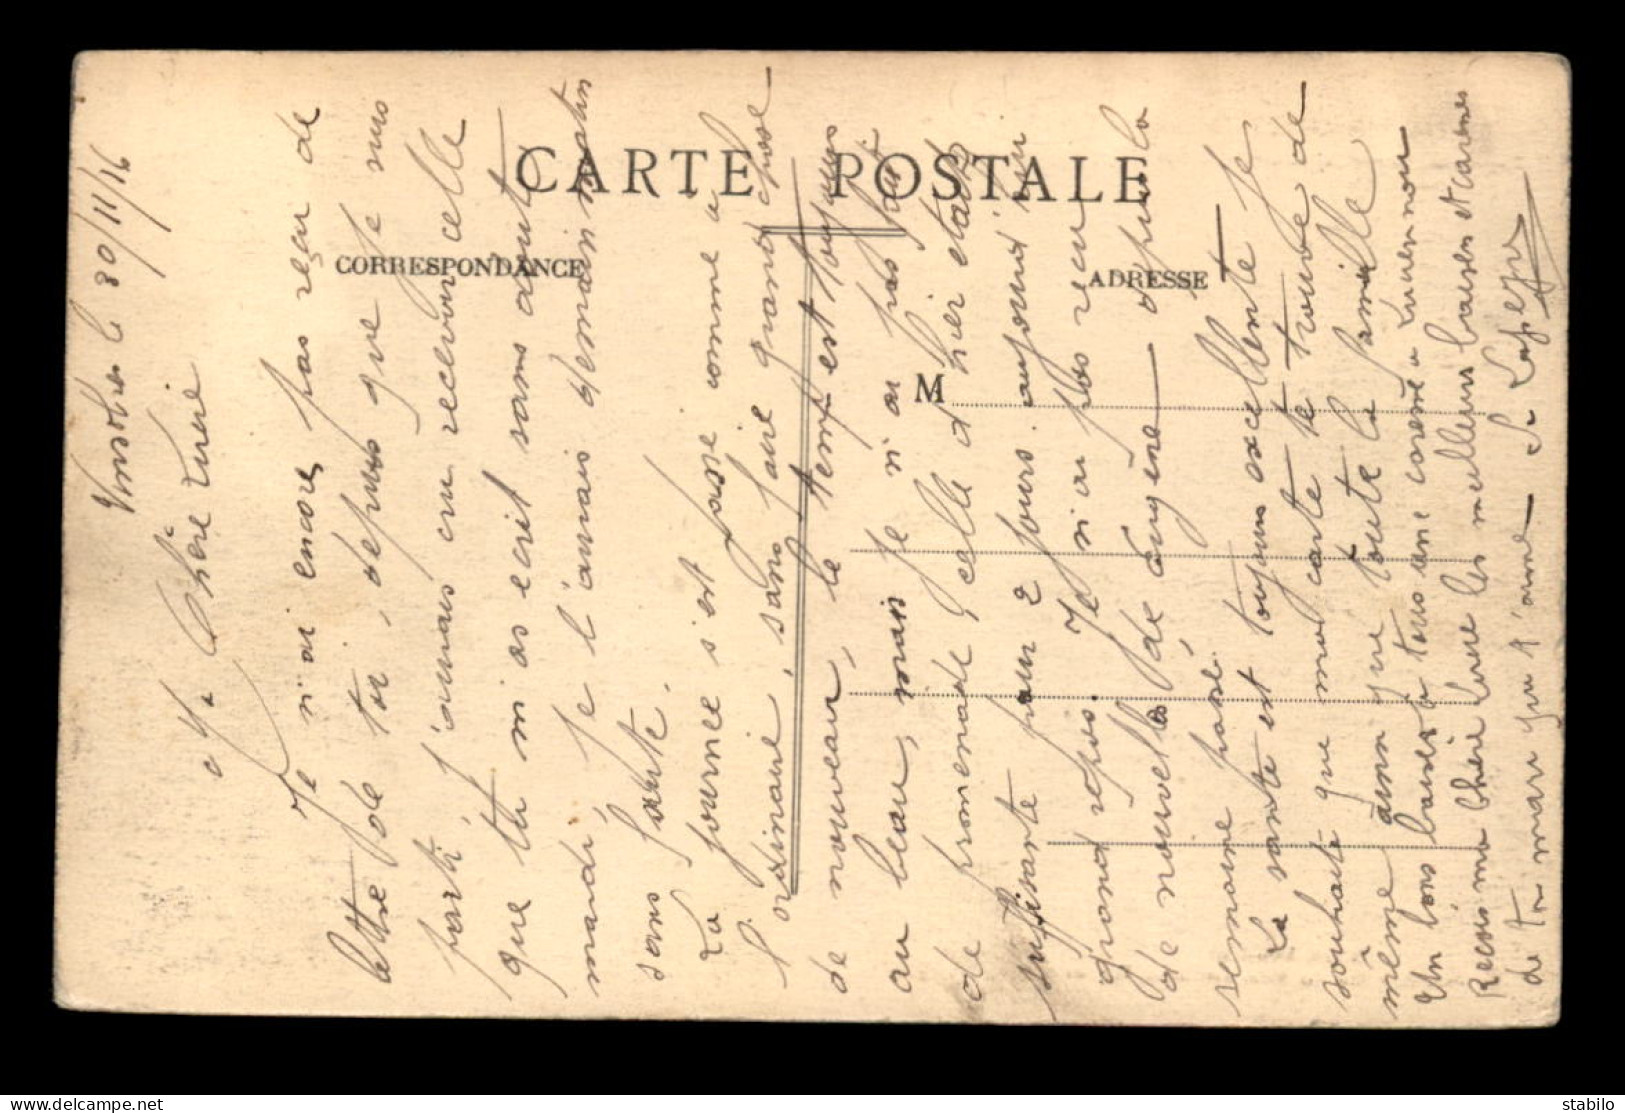 CARTE POSTALE
CORRESPONDANCE
ADRESSE
M
le 30/11/16
Ma Chère
Je n'ai encore pas reçu de
lettre de toi, depuis que je suis
parti, j'aurais cru recevoir celle
que tu m'as ecrit sans doute
mardi. Je l'aurais demain matin
sans faute.
La journée s'est passé comme a
l'ordinaire, sans faire grand chose
de nouveau, le temp est toujours
au beau, mais je n'ai pas fait
de promenade, celle d'hier etait
suffisante pour 2 jours. aujourd'hui
grand repos. Je n'ai pas reçu
de nouvelles de Eugène depuis la
semaine passé.
La santé est toujours excellente je
souhaite que ma carte te trouve de
même ainsi que toute la famille
Un bons baisers à tous une caresse a
Reçois ma Chère les meilleurs baisers et caresses
de ton mari qui t'aime
delcampe.net
stabilo